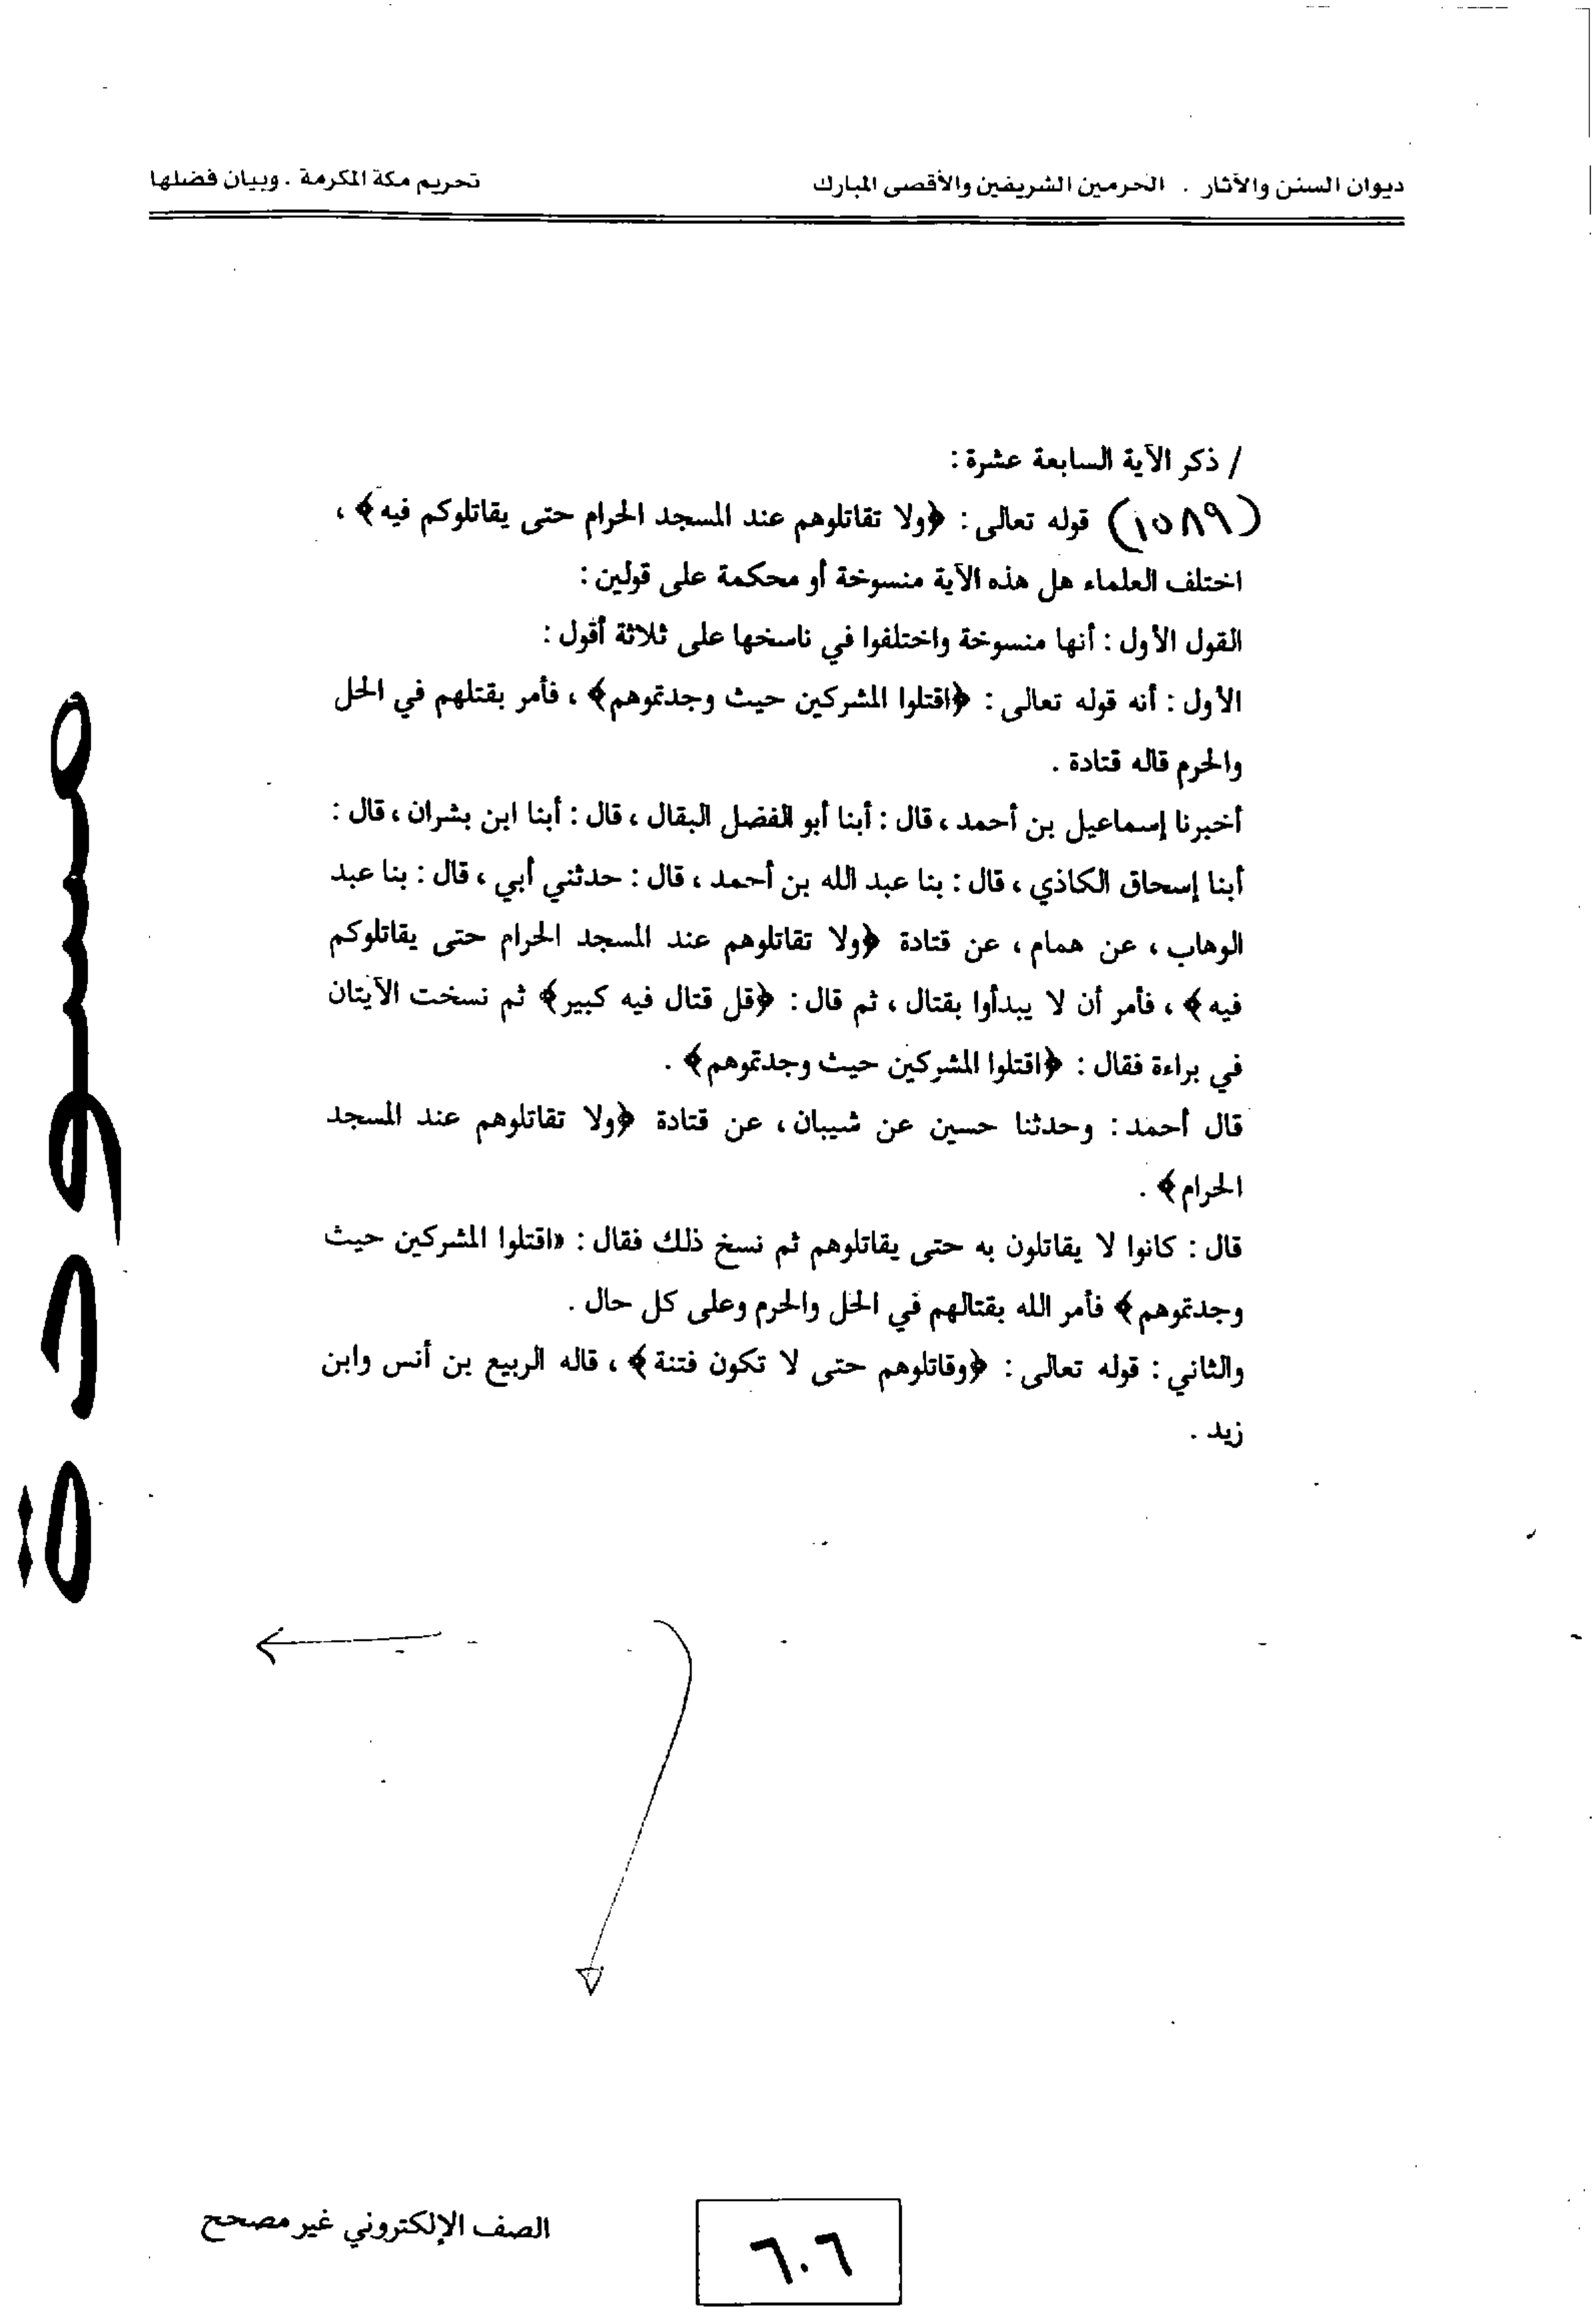 ديوان السنن والآثار . الحرمين الشريفين والأقصى المبارك
تحريم مكة المكرمة . وبيان فضلها
/ ذكر الآية السابعة عشرة :
(١٥٨٩) قوله تعالى : ﴿ولا تقاتلوهم عند المسجد الحرام حتى يقاتلوكم فيه﴾ ،
اختلف العلماء هل هذه الآية منسوخة أو محكمة على قولين :
القول الأول : أنها منسوخة واختلفوا في ناسخها على ثلاثة أقول :
الأول : أنه قوله تعالى : ﴿اقتلوا المشركين حيث وجدتموهم﴾ ، فأمر بقتلهم في الحل
والحرم قاله قتادة .
أخبرنا إسماعيل بن أحمد ، قال : أبنا أبو الفضل البقال ، قال : أبنا ابن بشران ، قال :
أبنا إسحاق الكاذي ، قال : بنا عبد الله بن أحمد ، قال : حدثني أبي ، قال : بنا عبد
الوهاب ، عن همام ، عن قتادة ﴿ولا تقاتلوهم عند المسجد الحرام حتى يقاتلوكم
فيه﴾ ، فأمر أن لا يبدأوا بقتال ، ثم قال : ﴿قل قتال فيه كبير﴾ ثم نسخت الآيتان
في براءة فقال : ﴿اقتلوا المشركين حيث وجدتموهم﴾ .
قال أحمد : وحدثنا حسين عن شيبان ، عن قتادة ﴿ولا تقاتلوهم عند المسجد
الحرام﴾ .
قال : كانوا لا يقاتلون به حتى يقاتلوهم ثم نسخ ذلك فقال : «اقتلوا المشركين حيث
وجدتموهم﴾ فأمر الله بقتالهم في الحل والحرم وعلى كل حال .
والثاني : قوله تعالى : ﴿وقاتلوهم حتى لا تكون فتنة﴾ ، قاله الربيع بن أنس وابن
زيد .
مسودة
٦٠٦
الصف الإلكتروني غير مصحح